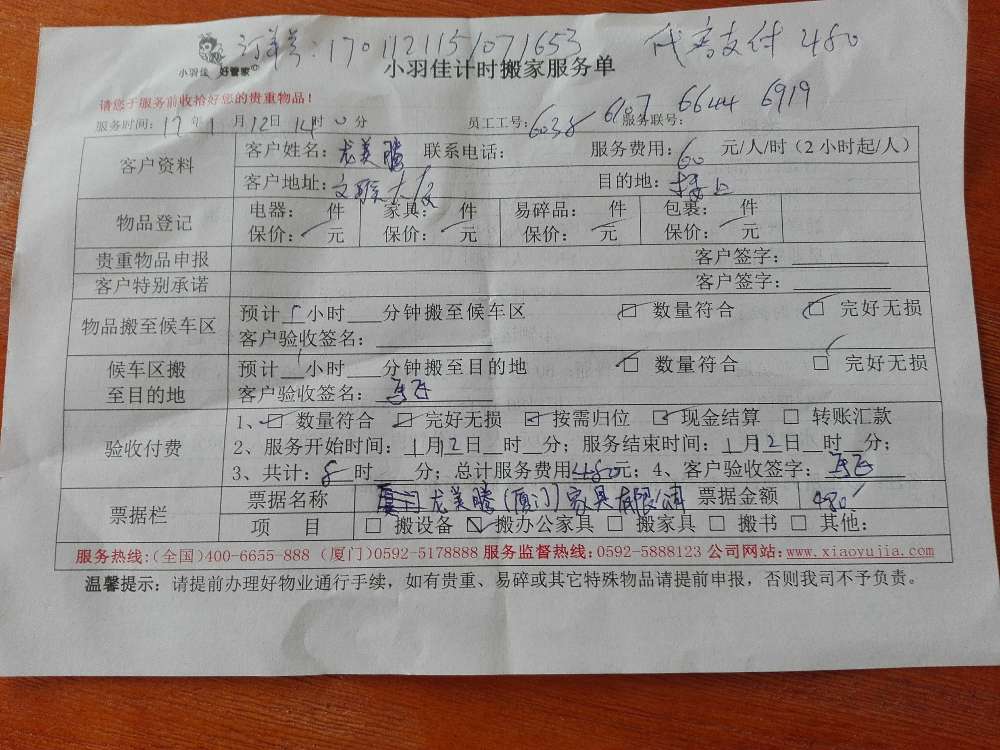 订单号:1701121151071653 代客支付 480
小羽佳 好管家
小羽佳计时搬家服务单
请您于服务前收拾好您的贵重物品!
服务时间:17年1月12日14时0分 员工工号:6038 6107 6644 6919 服务联号:
客户资料
客户姓名:尤美腾 联系电话: 服务费用:60 元/人/时(2小时起/人)
客户地址: 大 目的地:楼上
物品登记
电器: 件 家具: 件 易碎品: 件 包裹: 件
保价: 元 保价: 元 保价: 元 保价: 元
贵重物品申报 客户签字:
客户特别承诺 客户签字:
物品搬至候车区
预计 小时 分钟搬至候车区 ☑ 数量符合 ☑ 完好无损
客户验收签名:
候车区搬至目的地
预计 小时 分钟搬至目的地 ☑ 数量符合 ☑ 完好无损
客户验收签名:
验收付费
1、☑ 数量符合 ☑ 完好无损 ☑ 按需归位 ☑ 现金结算 □ 转账汇款
2、服务开始时间:1月12日 时 分;服务结束时间:1月12日 时 分;
3、共计:8时 分;总计服务费用480元;4、客户验收签字:
票据栏
票据名称 尤美腾(厦门)家具有限公司 票据金额 480
项 目 □ 搬设备 ☑ 搬办公家具 □ 搬家具 □ 搬书 □ 其他:
服务热线:(全国)400-6655-888 (厦门)0592-5178888 服务监督热线:0592-5888123 公司网站:www.xiaoyujia.com
温馨提示:请提前办理好物业通行手续,如有贵重、易碎或其它特殊物品请提前申报,否则我司不予负责。